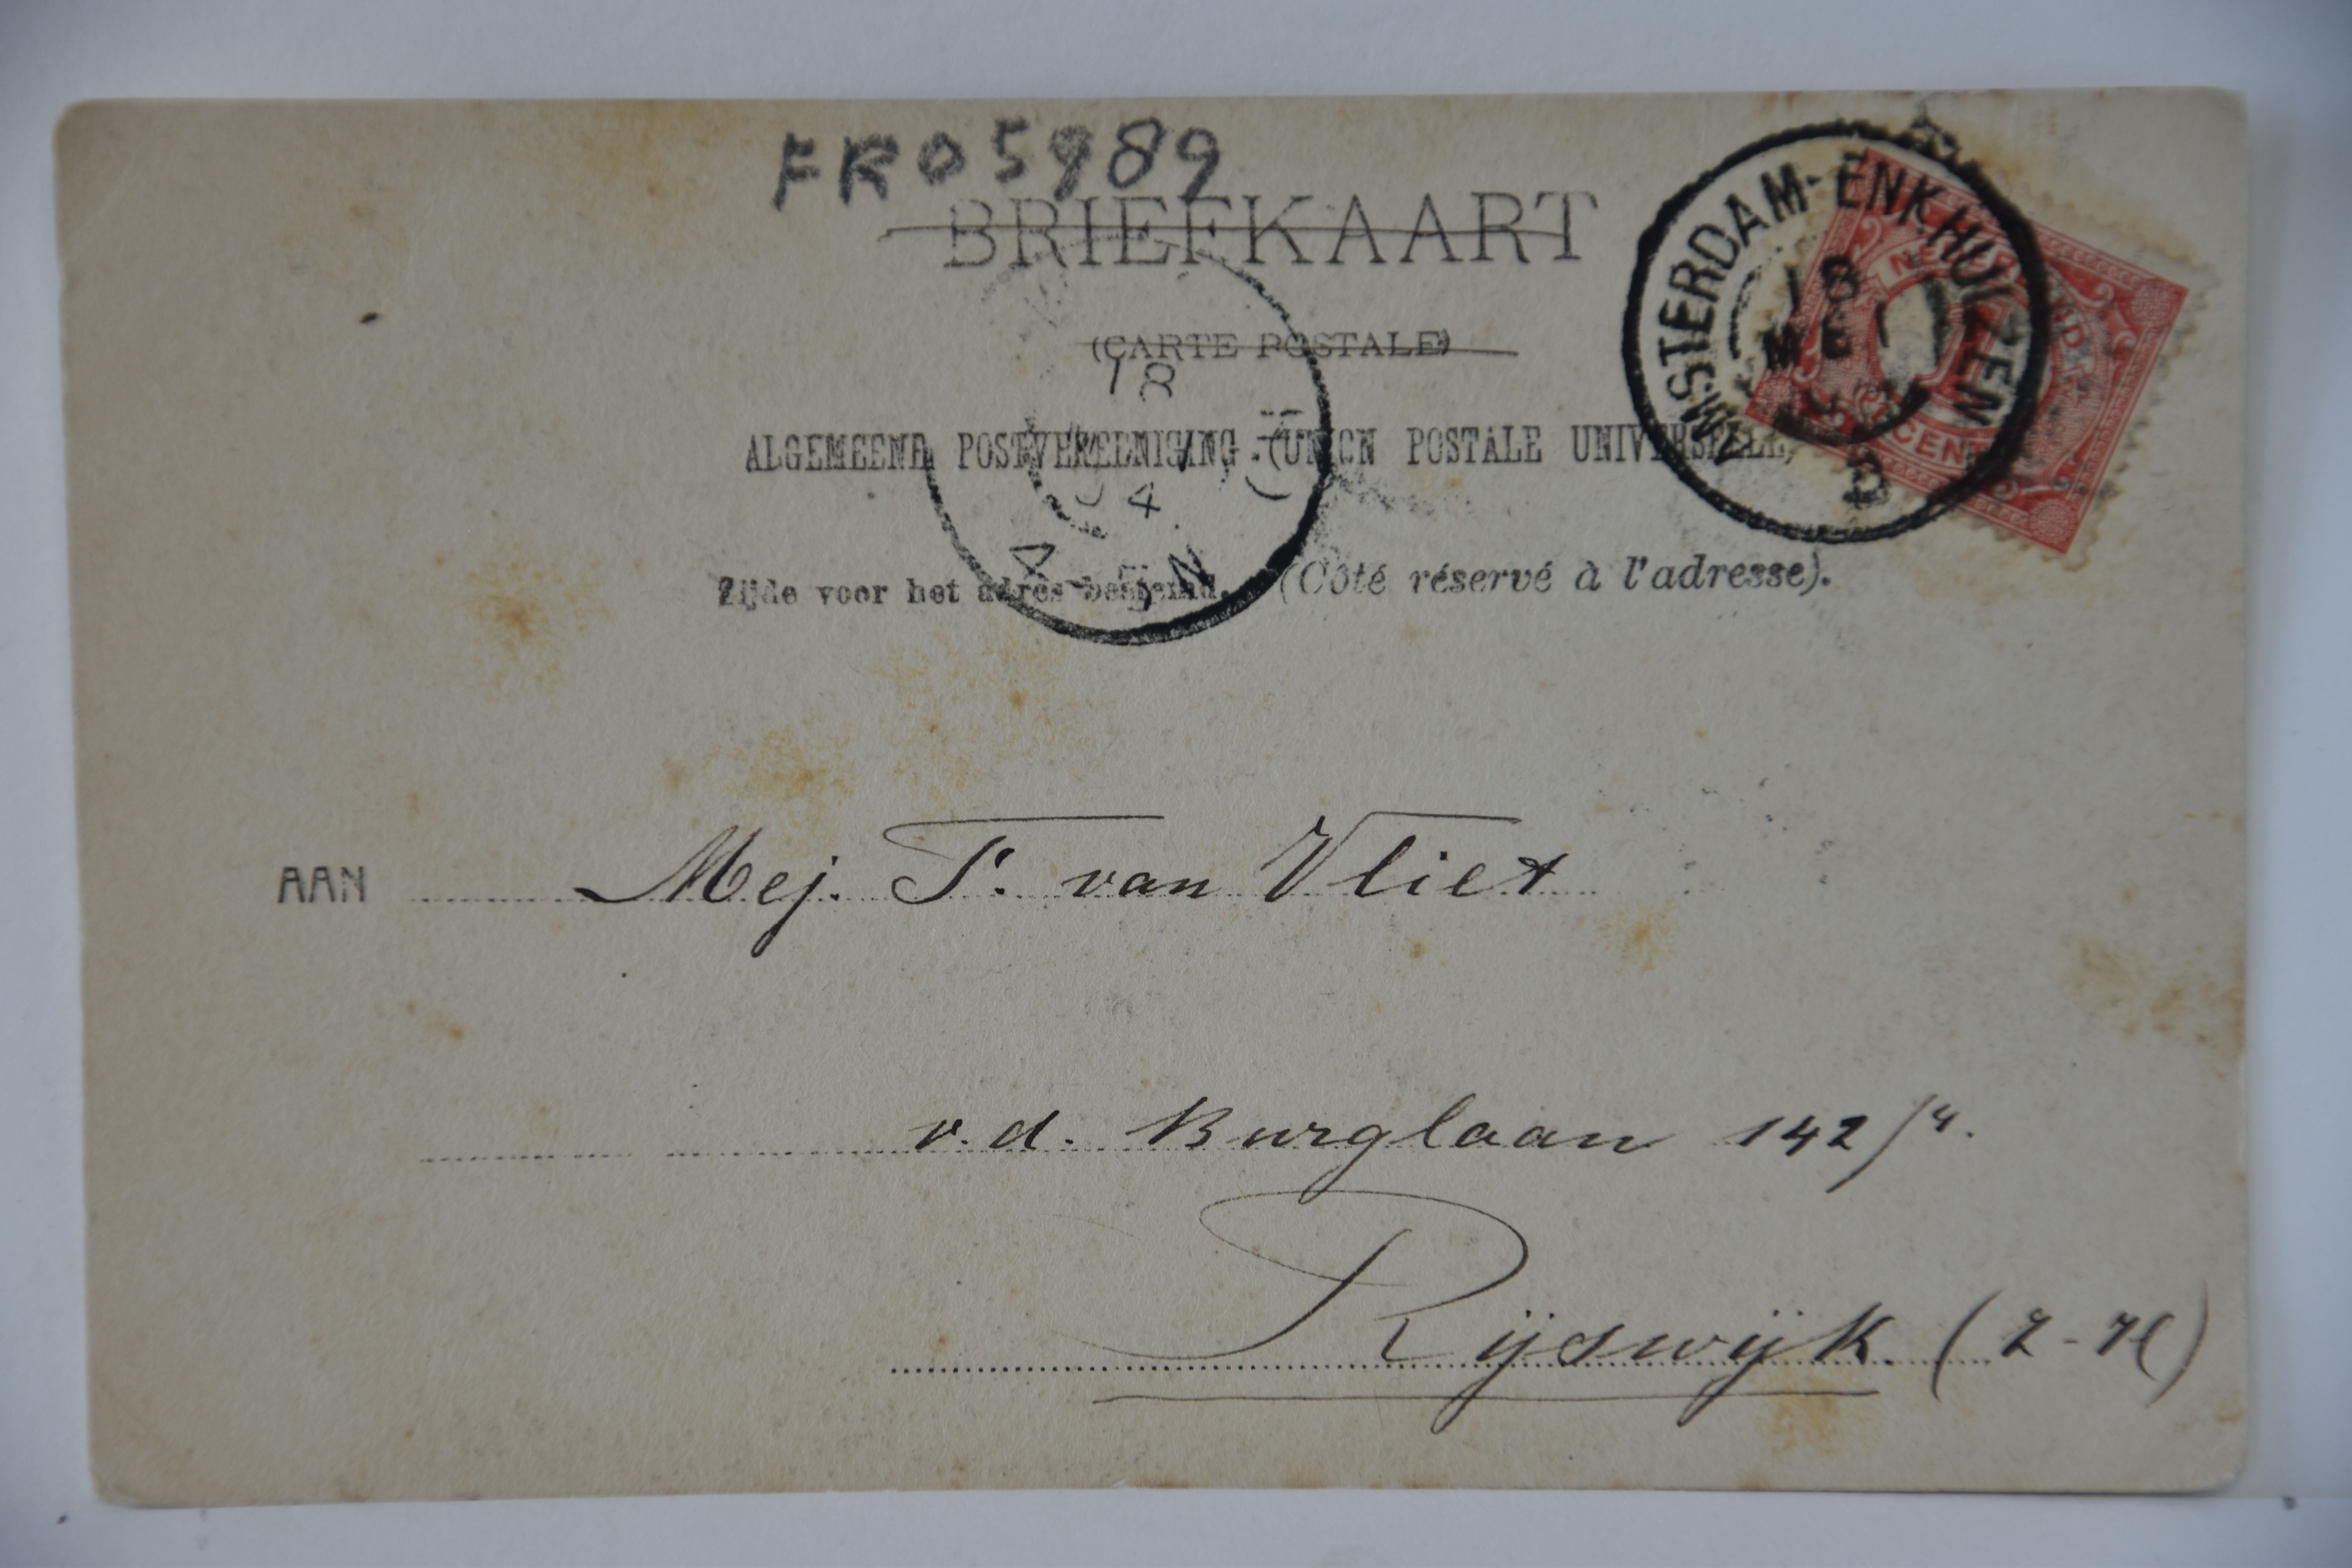 FR05989
BRIEFKAART
(CARTE POSTALE)
ALGEMEENE POSTVEREENIGING (UNION POSTALE UNIVERSELLE)
Zijde voor het adres bestemd. (Côté réservé à l'adresse).
AMSTERDAM-ENKHUIZEN
18
MEI
18
4
4-5N
CENT
AAN Mej. T. van Vliet
v.d. Burglaan 142
Rijswijk (Z-H)